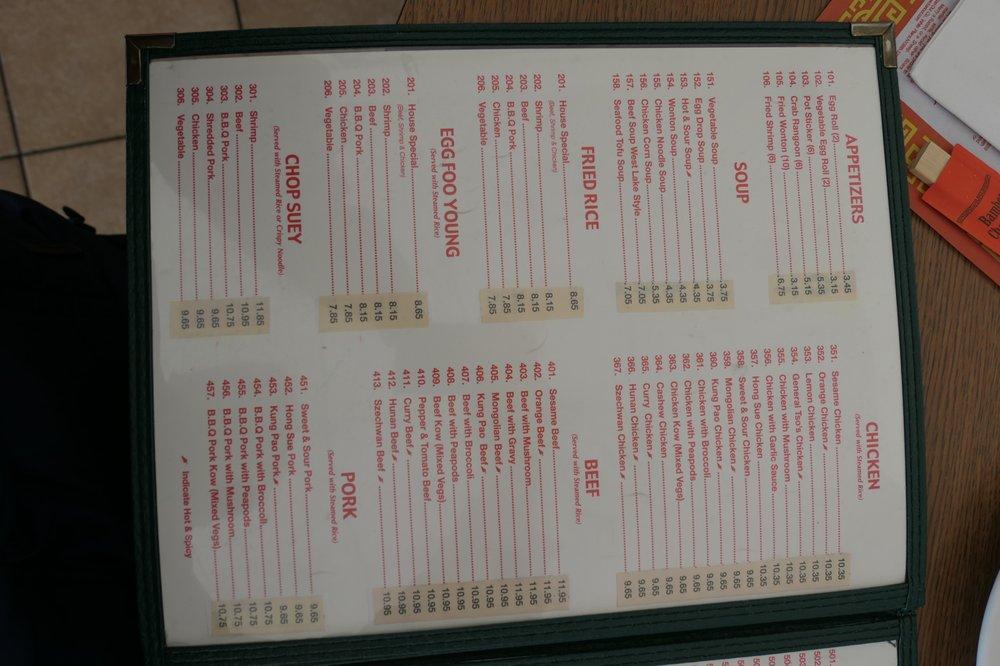 APPETIZERS
101. Egg Roll (2) 3.45
102. Vegetable Egg Roll (2) 3.15
103. Pot Sticker (6) 5.35
104. Crab Rangoon (6) 5.15
105. Fried Wonton (10) 3.15
106. Fried Shrimp (6) 6.75
SOUP
151. Vegetable Soup 3.75
152. Egg Drop Soup 3.75
153. Hot & Sour Soup 4.35
154. Wonton Soup 4.35
155. Chicken Noodle Soup 4.35
156. Chicken Corn Soup 5.35
157. Beef Soup West Lake Style 7.05
158. Seafood Tofu Soup 7.05
FRIED RICE
201. House Special 8.65
(Beef, Shrimp & Chicken)
202. Shrimp 8.15
203. Beef 8.15
204. B.B.Q Pork 8.15
205. Chicken 7.85
206. Vegetable 7.85
EGG FOO YOUNG
(Served with Steamed Rice)
201. House Special 8.65
(Beef, Shrimp & Chicken)
202. Shrimp 8.15
203. Beef 8.15
204. B.B.Q Pork 8.15
205. Chicken 7.85
206. Vegetable 7.85
CHOP SUEY
(Served with Steamed Rice or Crispy Noodle)
301. Shrimp 11.85
302. Beef 10.95
303. B.B.Q Pork 10.75
304. Shredded Pork 9.65
305. Chicken 9.65
306. Vegetable 9.65
CHICKEN
(Served with Steamed Rice)
351. Sesame Chicken 10.35
352. Orange Chicken 10.35
353. Lemon Chicken 10.35
354. General Tso's Chicken 10.35
355. Chicken with Mushroom 10.35
356. Chicken with Garlic Sauce 10.35
357. Hong Sue Chicken 10.35
358. Sweet & Sour Chicken 9.65
359. Mongolian Chicken 9.65
360. Kung Pao Chicken 9.65
361. Chicken with Broccoli 9.65
362. Chicken with Peapods 9.65
363. Chicken Kow (Mixed Vegs) 9.65
364. Cashew Chicken 9.65
365. Curry Chicken 9.65
366. Hunan Chicken 9.65
367. Szechwan Chicken 9.65
BEEF
(Served with Steamed Rice)
401. Sesame Beef 11.95
402. Orange Beef 11.95
403. Beef with Mushroom 11.95
404. Beef with Gravy 10.95
405. Mongolian Beef 10.95
406. Kung Pao Beef 10.95
407. Beef with Broccoli 10.95
408. Beef with Peapods 10.95
409. Beef Kow (Mixed Vegs) 10.95
410. Pepper & Tomato Beef 10.95
411. Curry Beef 10.95
412. Hunan Beef 10.95
413. Szechwan Beef 10.95
PORK
(Served with Steamed Rice)
451. Sweet & Sour Pork 9.65
452. Hong Sue Pork 9.65
453. Kung Pao Pork 9.65
454. B.B.Q Pork with Broccoli 10.75
455. B.B.Q Pork with Peapods 10.75
456. B.B.Q Pork with Mushroom 10.75
457. B.B.Q Pork Kow (Mixed Vegs) 10.75
Indicate Hot & Spicy
501.
502.